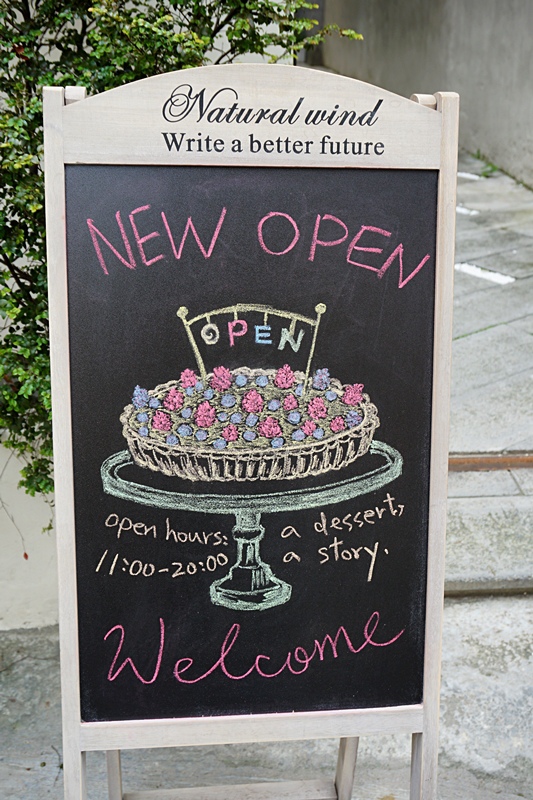 Natural wind
Write a better future
NEW OPEN
OPEN
open hours:
11:00-20:00
a dessert,
a story.
Welcome